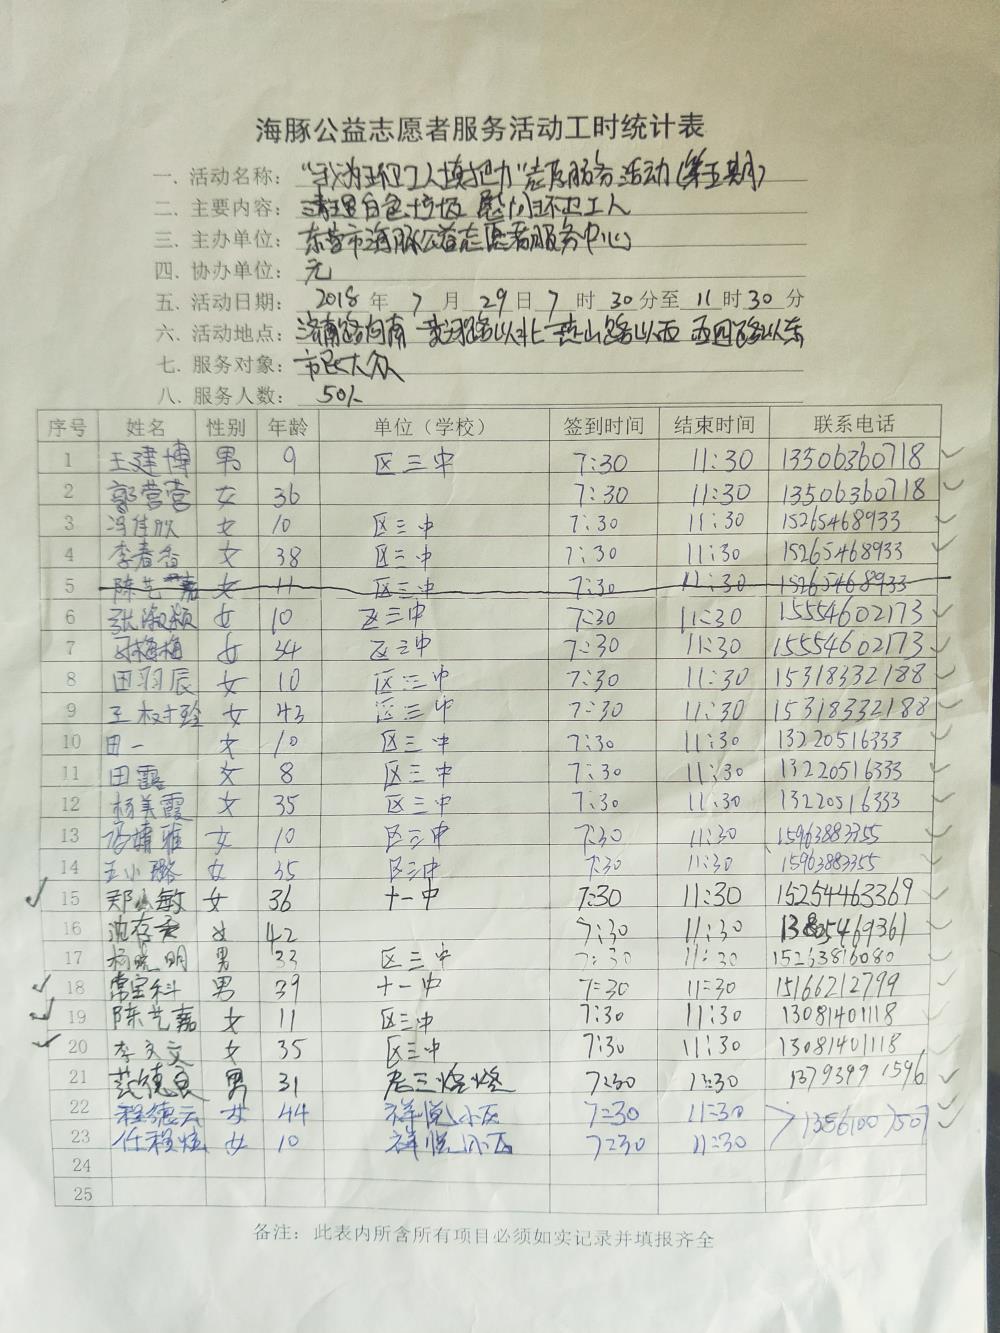 海豚公益志愿者服务活动工时统计表
一. 活动名称： “我为环卫工人填把力”志愿服务活动(第五期)
二. 主要内容： 清理白色垃圾 慰问环卫工人
三. 主办单位： 东营市海豚公益志愿者服务中心
四. 协办单位： 无
五. 活动日期： 2018 年 7 月 29 日 7 时 30 分至 11 时 30 分
六. 活动地点： 济南路向南 黄河路以北 燕山路以西 西四路以东
七. 服务对象： 市民大众
八. 服务人数： 50人
序号 姓名 性别 年龄 单位（学校） 签到时间 结束时间 联系电话
1 王建博 男 9 区三中 7:30 11:30 13506360718
2 郭营营 女 36 7:30 11:30 13506360718
3 冯佳欣 女 10 区三中 7:30 11:30 15265468933
4 李春香 女 38 区三中 7:30 11:30 15265468933
5 陈艺嘉 女 11 区三中 7:30 11:30 15265468933
6 张淑颖 女 10 区三中 7:30 11:30 15554602173
7 梅梅 女 34 区三中 7:30 11:30 15554602173
8 田羽辰 女 10 区三中 7:30 11:30 15318332188
9 王树玲 女 43 区三中 7:30 11:30 15318332188
10 田一 女 10 区三中 7:30 11:30 13220516333
11 田露 女 8 区三中 7:30 11:30 13220516333
12 杨美霞 女 35 区三中 7:30 11:30 13220516333
13 冯婧雅 女 10 区三中 7:30 11:30 15963883355
14 王小璐 女 35 区三中 7:30 11:30 15963883355
15 郑小敏 女 36 十一中 7:30 11:30 15254463369
16 女 42 7:30 11:30 13805469361
17 杨晓明 男 33 区三中 7:30 11:30 15263816080
18 常宝科 男 39 十一中 7:30 11:30 15166212799
19 陈艺嘉 女 11 区三中 7:30 11:30 13081401118
20 李文文 女 35 区三中 7:30 11:30 13081401118
21 范德良 男 31 老三烧烤 7:30 11:30 13793991596
22 程德云 女 44 祥悦小区 7:30 11:30 13561007507
23 任程炫 女 10 祥悦小区 7:30 11:30
24
25
备注：此表内所含所有项目必须如实记录并填报齐全